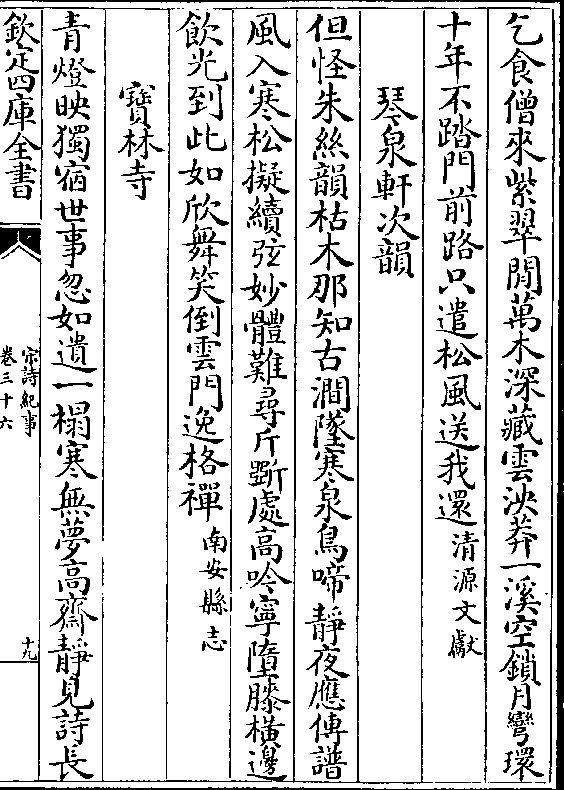 乞食僧來紫翠間萬木深藏雲泱莽一溪空鎖月彎環
十年不踏門前路只遣松風送我還清源文獻
琴泉軒次韻
但怪朱絲韻枯木那知古澗墜寒泉鳥啼靜夜應傳譜
風入寒松擬續弦妙體難尋斤斲處高吟寧墮膝橫邊
飲光到此如欣舞笑倒雲門逸格禪南安縣志
寳林寺
青燈映獨宿世事忽如遺一榻寒無夢高齋靜見詩長
欽定四庫全書
宋詩紀事
卷三十六
十九